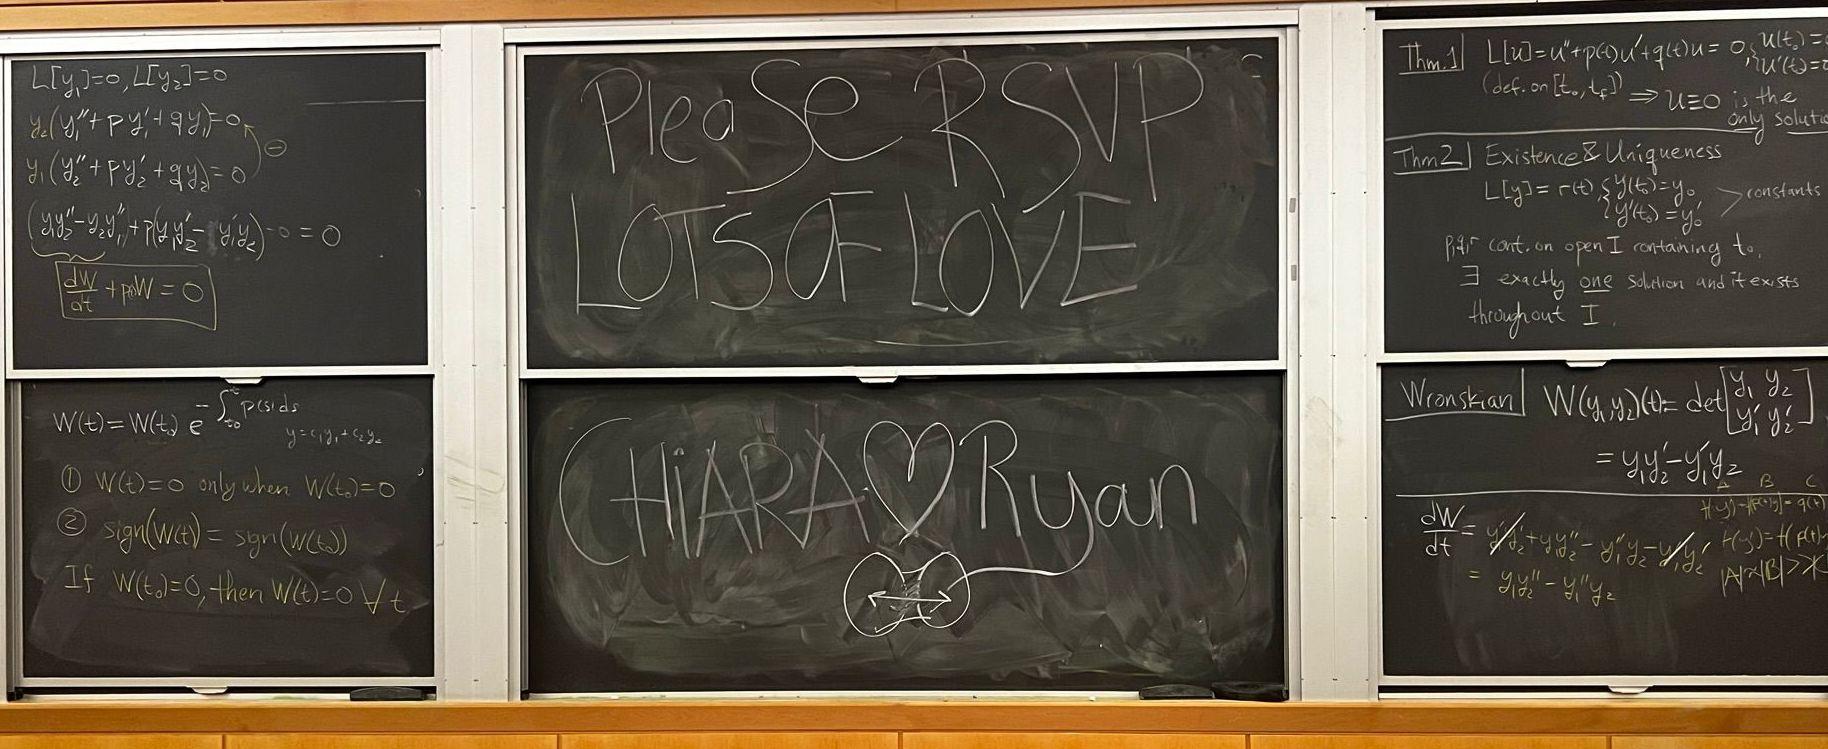 L[y₁]=0, L[y₂]=0
y₂(y₁''+py₁'+qy₁)=0
⊖
y₁(y₂''+py₂'+qy₂)=0
(y₁y₂''-y₂y₁'')+p(y₁y₂'-y₁'y₂)-0=0
dW/dt+p(t)W=0
W(t)=W(t₀) e^-∫_t₀^t p(s)ds
y=c₁y₁+c₂y₂
① W(t)=0 only when W(t₀)=0
② sign(W(t))=sign(W(t₀))
If W(t₀)=0, then W(t)=0 ∀t
Please RSVP
LOTS OF LOVE
CHiARA ♡ Ryan
Thm.1 L[u]=u''+p(t)u'+q(t)u=0, {u(t₀)=
u'(t₀)=
(def. on [t₀,t_f]) ⇒ u≡0 is the
only
Thm2 Existence & Uniqueness
L[y]=r(t), {y(t₀)=y₀
y'(t₀)=y₀' > constants
p,q,r cont. on open I containing t₀,
∃ exactly one solution and it exists
throughout I.
Wronskian W(y₁,y₂)(t)=det[y₁ y₂
y₁' y₂']
=y₁y₂'-y₁'y₂
A B C
dW/dt=y₁'y₂'+y₁y₂''-y₁''y₂-y₁'y₂'
=y₁y₂''-y₁''y₂